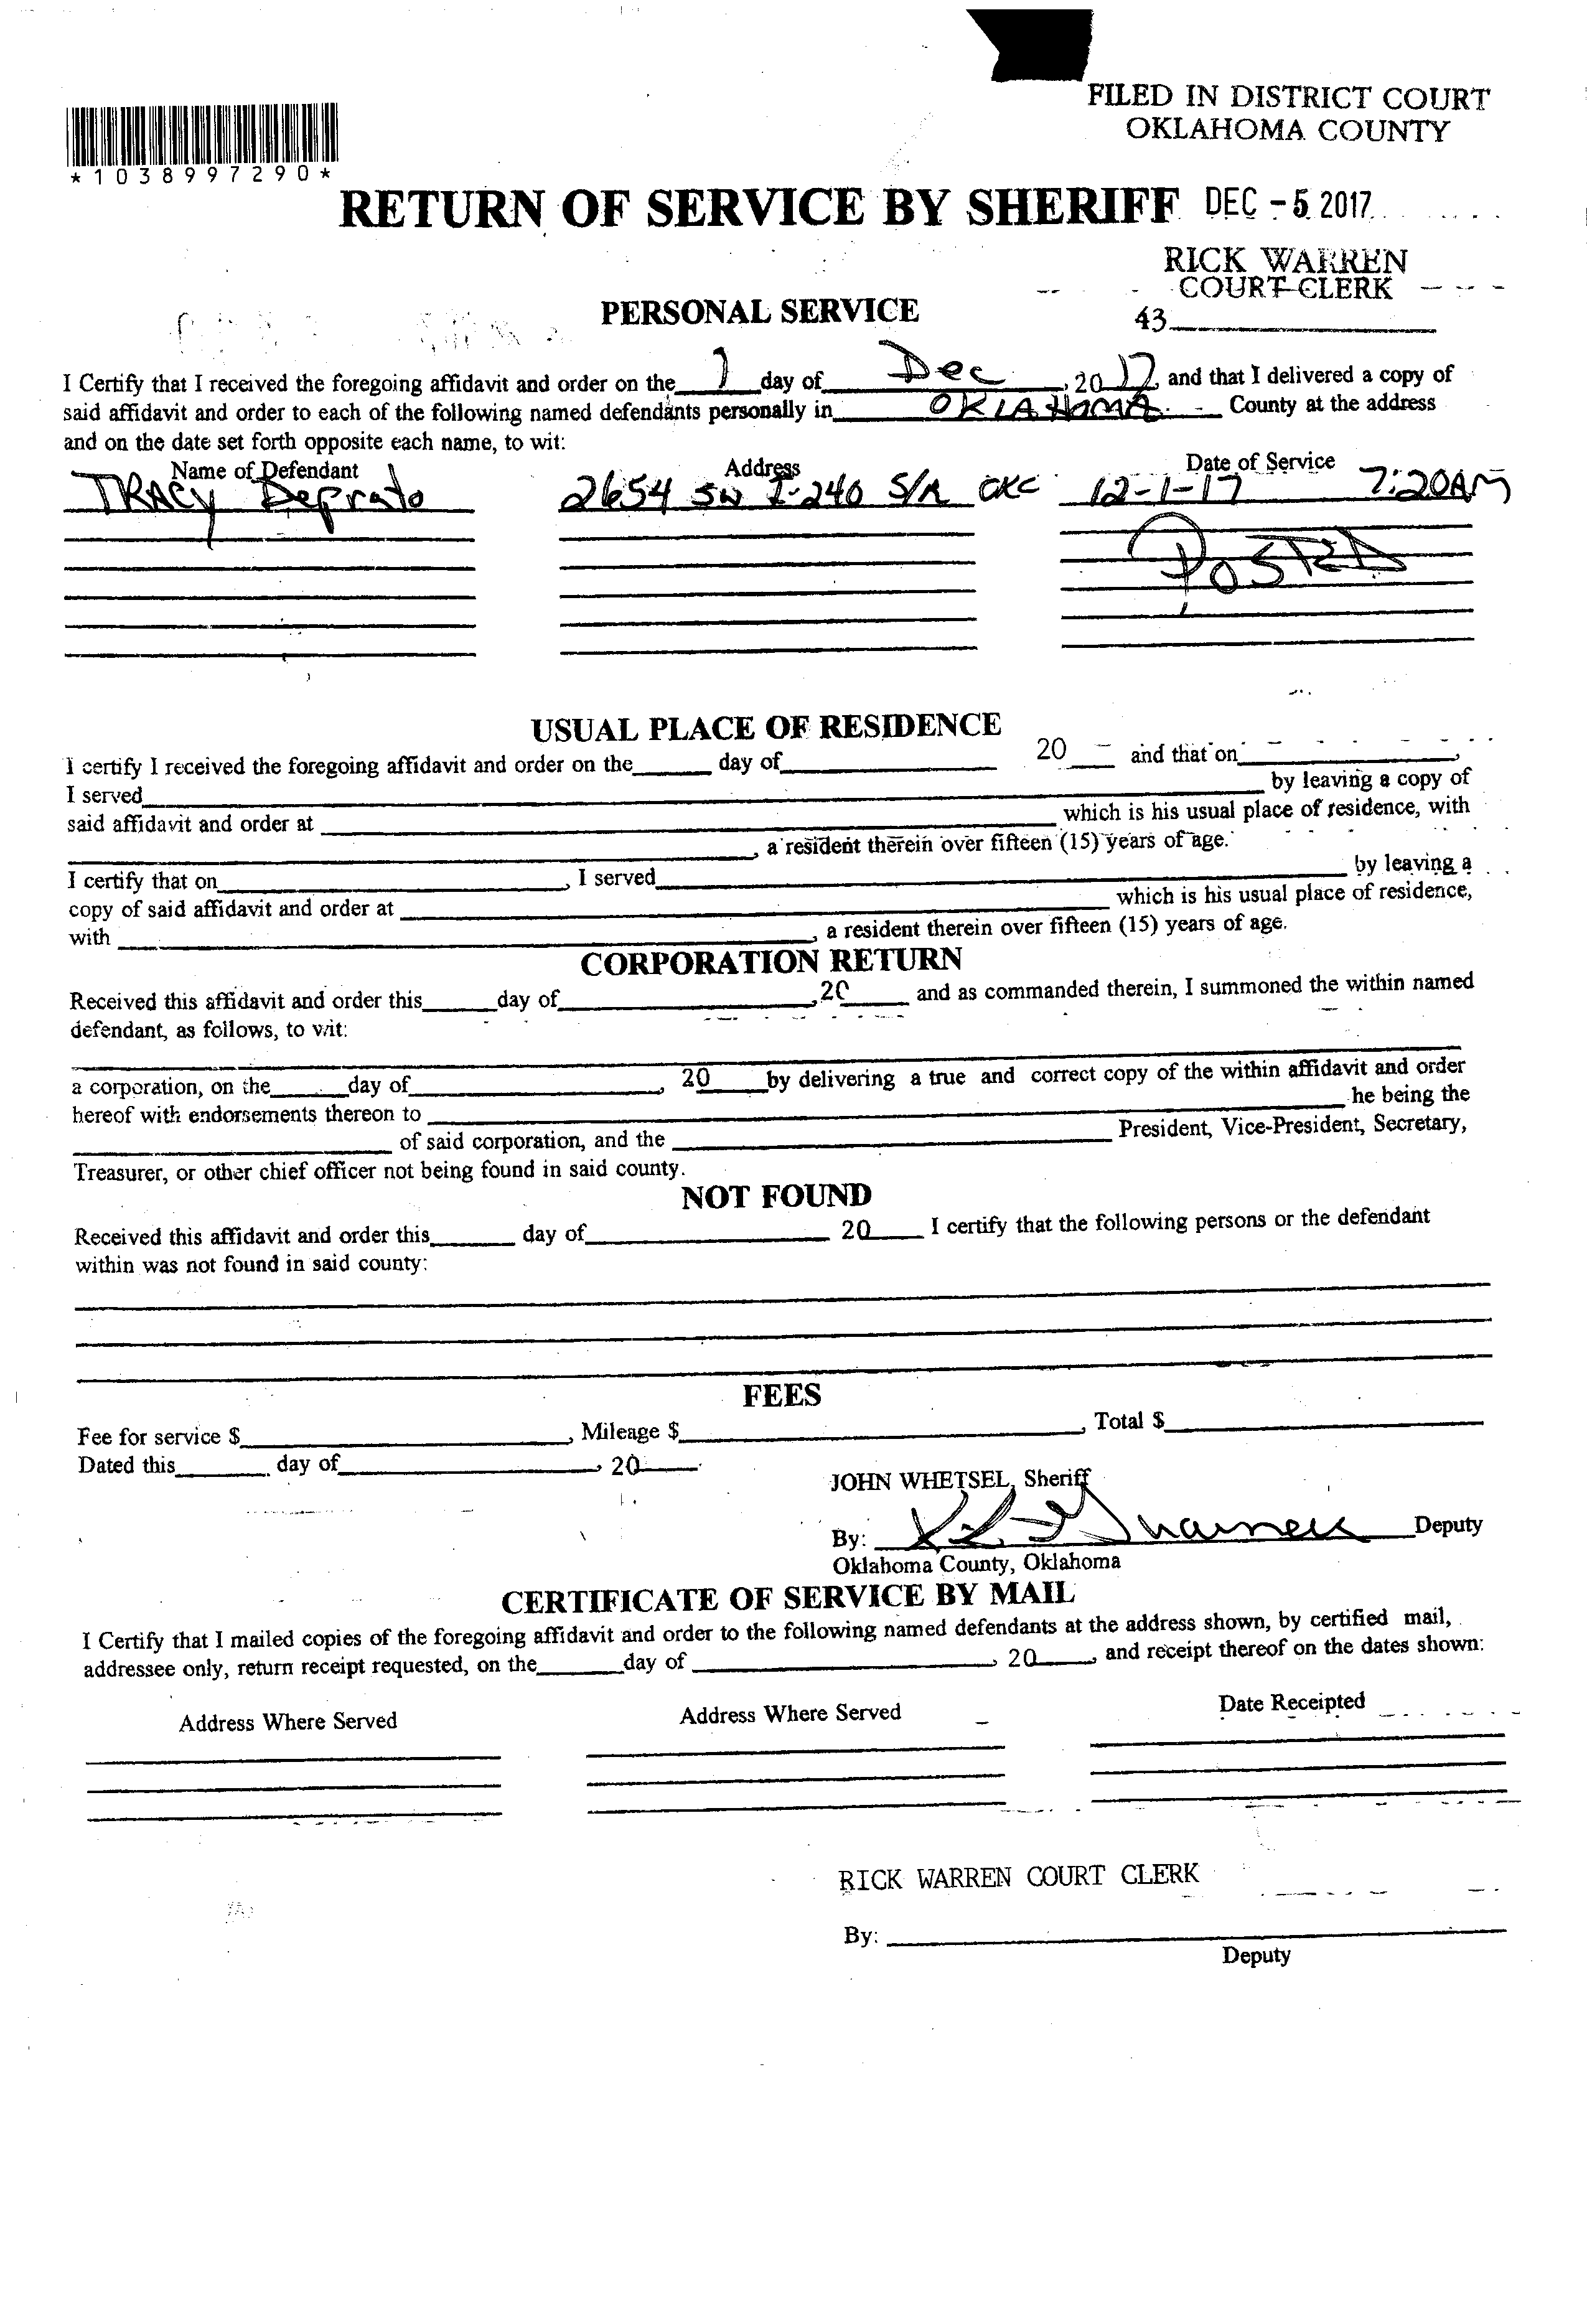 FILED IN DISTRICT COURT
OKLAHOMA COUNTY
*1038997290*
RETURN OF SERVICE BY SHERIFF DEC - 5 2017
RICK WARREN
COURT CLERK
43
PERSONAL SERVICE
I Certify that I received the foregoing affidavit and order on the 1 day of Dec, 2017, and that I delivered a copy of
said affidavit and order to each of the following named defendants personally in OKLAHOMA County at the address
and on the date set forth opposite each name, to wit:
Name of Defendant Address Date of Service
TRACY Deprato 2654 SW I-240 S/R OKC 12-1-17 7:20AM
POSTED
USUAL PLACE OF RESIDENCE
I certify I received the foregoing affidavit and order on the day of 20 and that on ,
I served by leaving a copy of
said affidavit and order at which is his usual place of residence, with
, a resident therein over fifteen (15) years of age.
I certify that on , I served by leaving a
copy of said affidavit and order at which is his usual place of residence,
with , a resident therein over fifteen (15) years of age.
CORPORATION RETURN
Received this affidavit and order this day of ,20 and as commanded therein, I summoned the within named
defendant, as follows, to wit:
a corporation, on the day of , 20 by delivering a true and correct copy of the within affidavit and order
hereof with endorsements thereon to he being the
of said corporation, and the President, Vice-President, Secretary,
Treasurer, or other chief officer not being found in said county.
NOT FOUND
Received this affidavit and order this day of 20 I certify that the following persons or the defendant
within was not found in said county:
FEES
Fee for service $ , Mileage $ , Total $
Dated this day of , 20
JOHN WHETSEL, Sheriff
By: Deputy
Oklahoma County, Oklahoma
CERTIFICATE OF SERVICE BY MAIL
I Certify that I mailed copies of the foregoing affidavit and order to the following named defendants at the address shown, by certified mail,
addressee only, return receipt requested, on the day of , 20 , and receipt thereof on the dates shown:
Address Where Served Address Where Served Date Receipted
RICK WARREN COURT CLERK
By:
Deputy